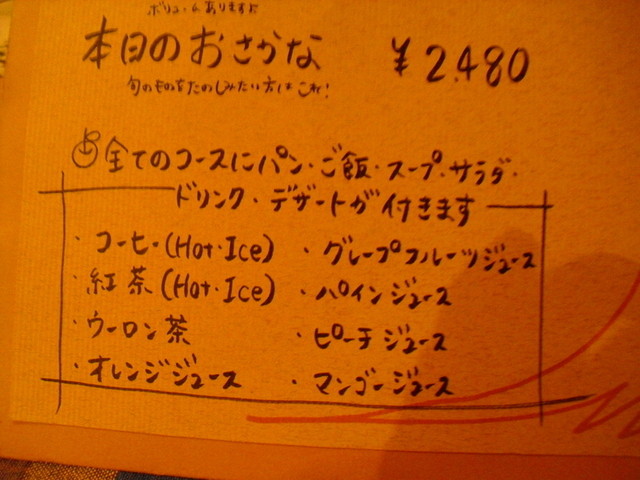 ボリュームありますよ
本日のおさかな ¥2,480
旬のものをたのしみたい方はこれ!
全てのコースにパン・ご飯・スープ・サラダ・
ドリンク・デザートが付きます
・コーヒー(Hot・Ice)
・紅茶(Hot・Ice)
・ウーロン茶
・オレンジジュース
・グレープフルーツジュース
・パインジュース
・ピーチジュース
・マンゴージュース